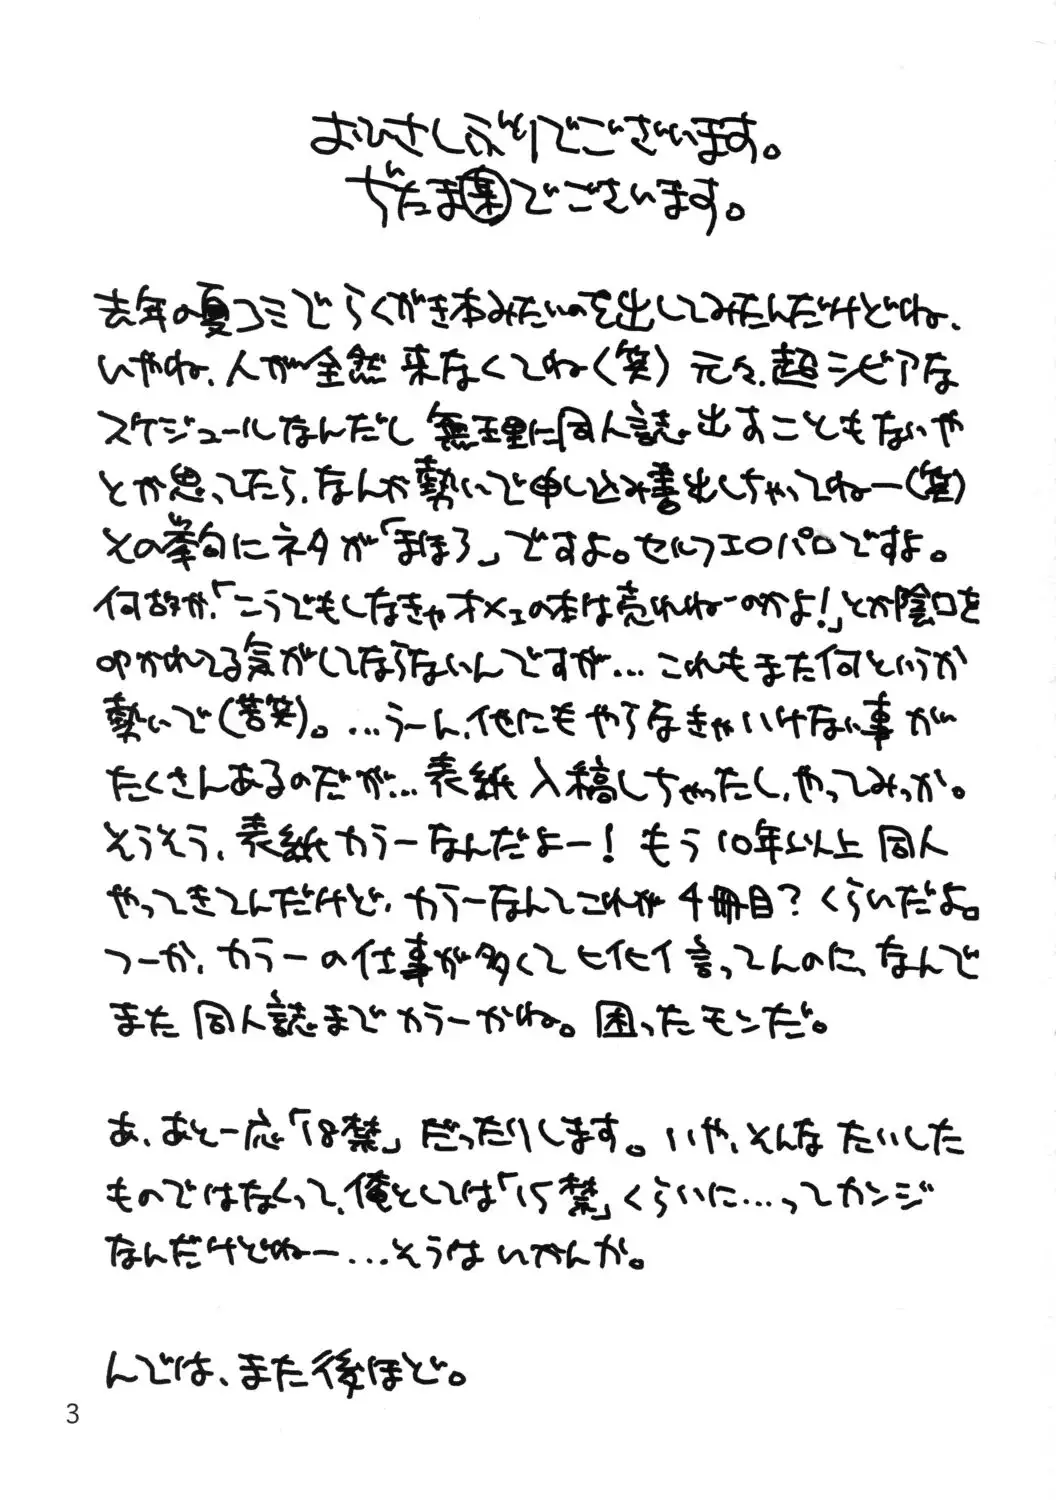 おひさしぶりでございます。
ぢたま(某)でございます。
去年の夏コミでらくがき本みたいのを出してみたんだけどね、
いやね、人が全然来なくてね(笑) 元々、超シビアな
スケジュールなんだし 無理に同人誌出すこともないや
とか思ってたら、なんか勢いで申し込み書出しちゃってねー(笑)
その挙句にネタが「まほろ」ですよ。セルフエロパロですよ。
何故か、「こうでもしなきゃオメェの本は売れねーのかよ!」とか陰口を
叩かれてる気がしてならないんですが…これもまた何というか
勢いで(苦笑)。…うーん、他にもやらなきゃいけない事が
たくさんあるのだが…表紙入稿しちゃったし、やってみっか。
そうそう、表紙カラーなんだよー! もう10年以上同人
やってきてんだけど、カラーなんてこれが4冊目?くらいだよ。
つーか、カラーの仕事が多くてヒイヒイ言ってんのに、なんで
また同人誌までカラーかね。困ったモンだ。
あ、あと一応「18禁」だったりします。いや、そんなたいした
ものではなくって、俺としては「15禁」くらいに…ってカンジ
なんだけどねー…そうはいかんか。
んでは、また後ほど。
3